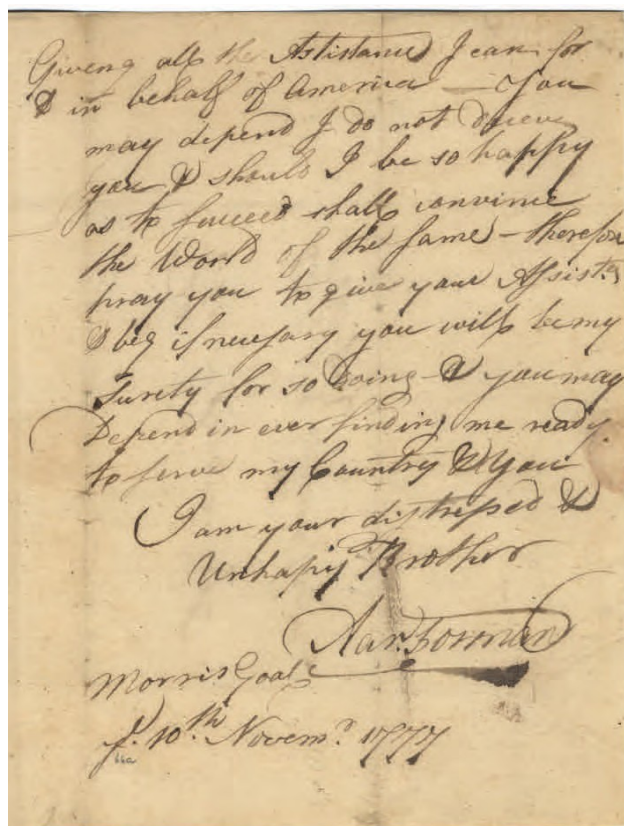 Giveng all the Assistance I can for
& in behalf of America — You
may depend I do not deceive
you & should I be so happy
as to succeed shall convince
the World of the same – therefore
pray you to give your Assistce
& beg if necessary you will be my
Surety for so doing & you may
Depend in ever finding me ready
to serve my Country & You
I am your distressed &
Unhapy Brother
Aar. Forman
Morris Goal
ye. 10th. Novemr. 1777